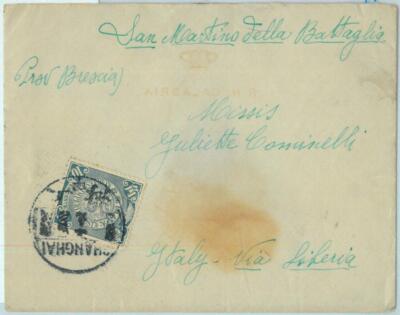 San Martino della Battaglia
(Prov Brescia)
R. N. CALABRIA
Missis
Giuliette Cominelli
Italy - Via Siberia
SHANGHAI